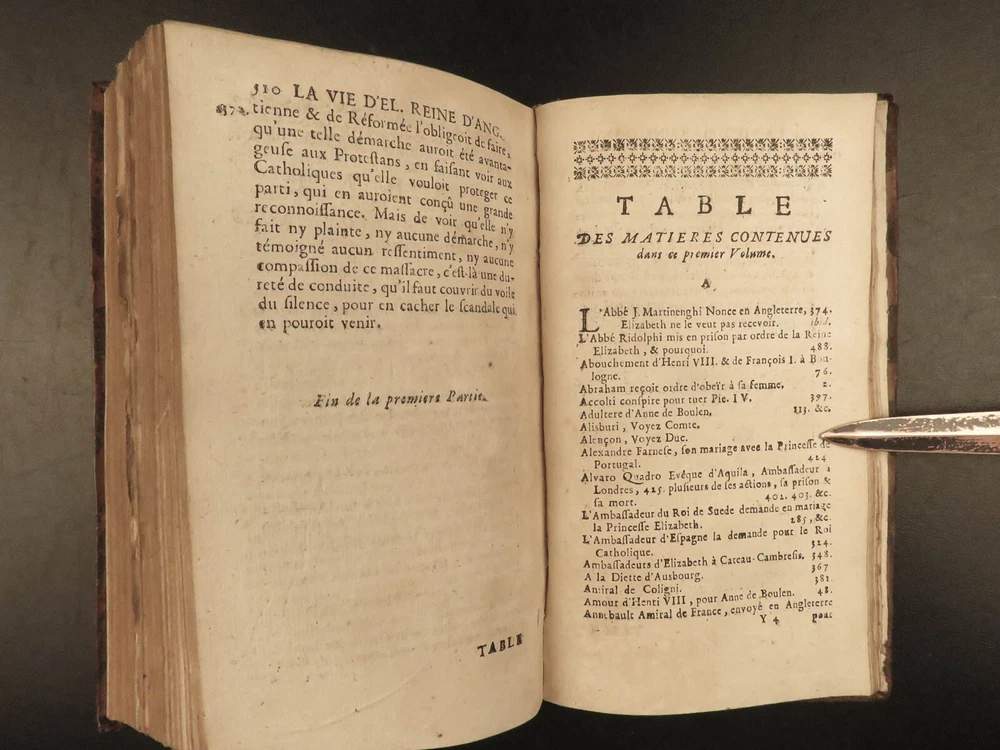 510 LA VIE D'EL. REINE D'ANG.
tienne & de Réformée l'obligeoit de faire,
qu'une telle démarche auroit été avanta-
geuse aux Protestans, en faisant voir aux
Catholiques qu'elle vouloit proteger ce
parti, qui en auroient conçû une grande
reconnoissance. Mais de voir qu'elle n'y
fait ny plainte, ny aucune démarche, n'y
témoigné aucun ressentiment, ny aucune
compassion de ce massacre, c'est-là une du-
reté de conduite, qu'il faut couvrir du voile
du silence, pour en cacher le scandale qui
en pouroit venir.
Fin de la premiere Partie.
TABLE
TABLE
DES MATIERES CONTENUES
dans ce premier Volume.
A.
L'Abbé J. Martinenghi Nonce en Angleterre, 374.
Elizabeth ne le veut pas recevoir. ibid.
L'Abbé Ridolphi mis en prison par ordre de la Reine
Elizabeth, & pourquoi. 488.
Abouchement d'Henri VIII. & de François I. à Bou-
logne. 76.
Abraham reçoit ordre d'obeïr à sa femme, 2.
Accolti conspire pour tuer Pie. IV. 397.
Adultere d'Anne de Boulen, 113. &c.
Alisburi, Voyez Comte.
Alençon, Voyez Duc.
Alexandre Farnese, son mariage avec la Princesse de
Portugal. 424
Alvaro Quadro Evêque d'Aquila, Ambassadeur à
Londres, 425. plusieurs de ses actions, sa prison &
sa mort. 402. 403. &c.
L'Ambassadeur du Roi de Suede demande en mariage
la Princesse Elizabeth. 285, &c.
L'Ambassadeur d'Espagne la demande pour le Roi
Catholique. 324.
Ambassadeurs d'Elizabeth à Cateau-Cambresis. 348.
A la Diette d'Ausbourg. 367
Amiral de Coligni. 381
Amour d'Henri VIII, pour Anne de Boulen. 48.
Annebault Amiral de France, envoyé en Angleterre
Y 4 pour